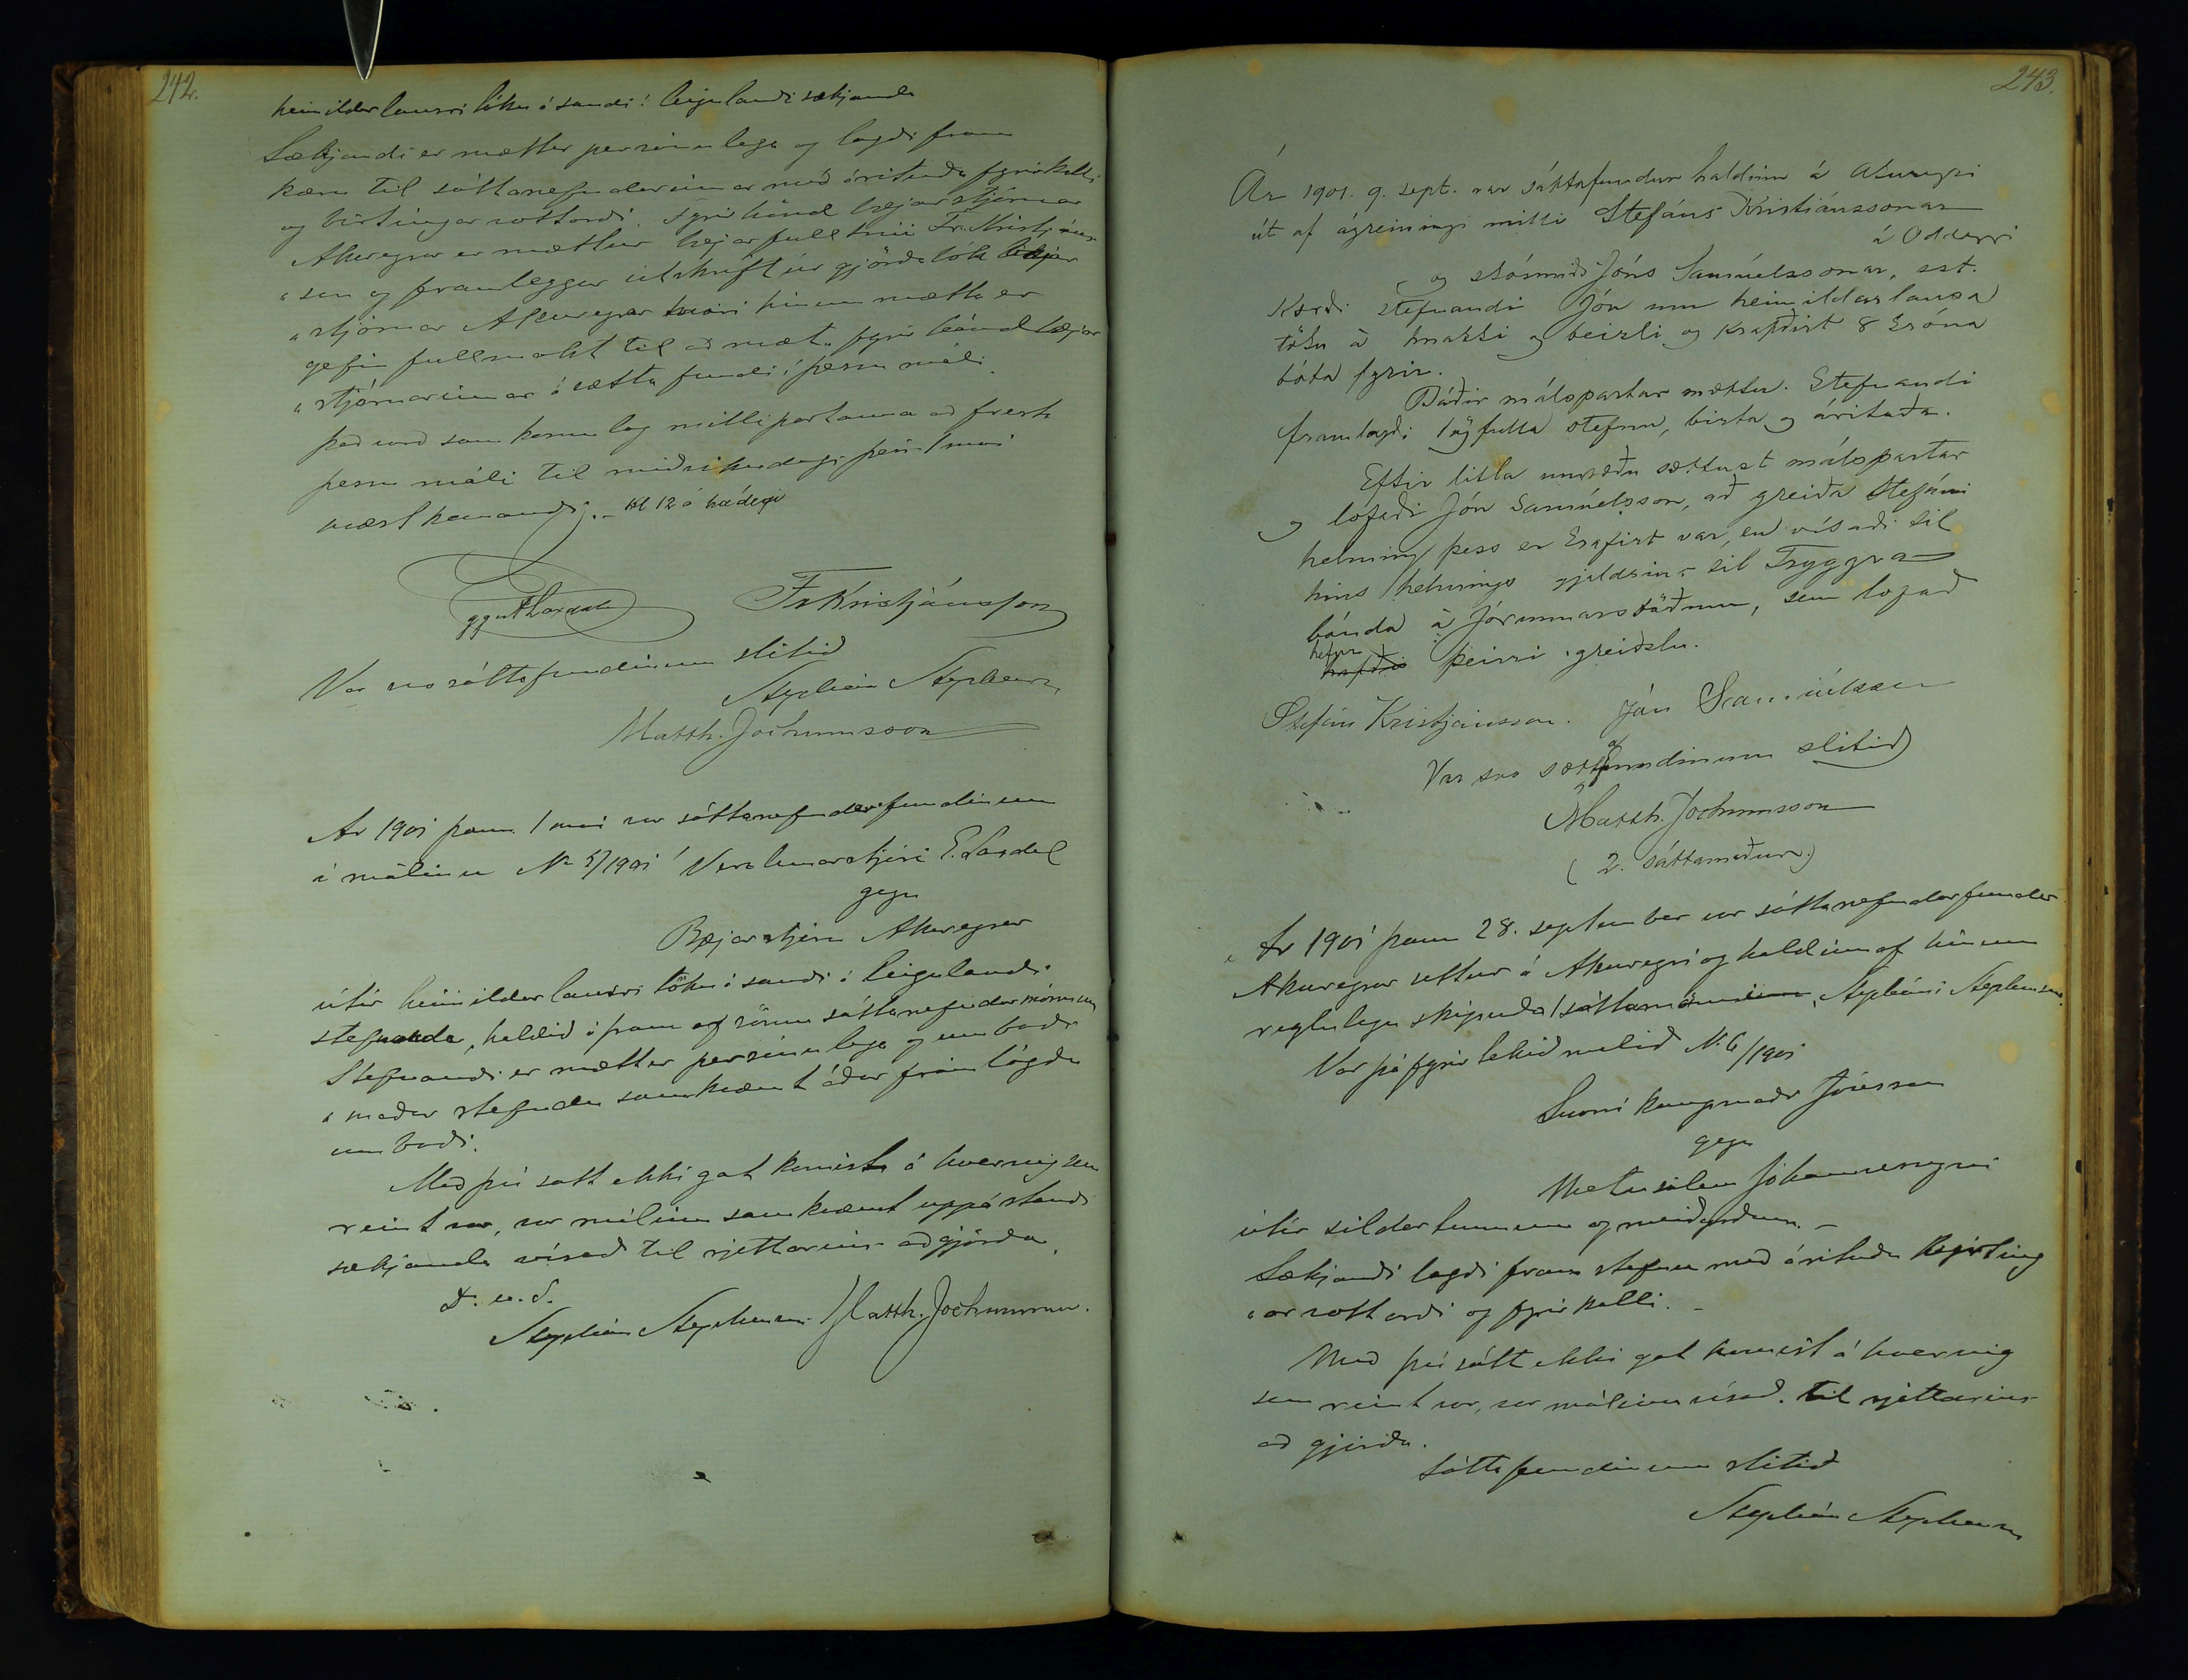 242.
heimilderlausri töku á sandi í leigulandi sækjanda
Sækjandi er mætter persónulega og lagði fram
kæru til sáttanefnderinnar með árituðu fyrirkalli
og birtingarvottorði. Fyrir hönd bæjarstjórnar
Akureyrar er mættur bæjarfulltrúi Fr. Kristjáns
"son og framleggur útskrift úr gjörðabók bæjar
"stjórnar Akureyrar hinum mætta er
gefin fullmakt til að mæta fyrir hönd bæjar
"stjórnarinnar á sætta fundi í þessu máli.
það varð samkomulag milli partanna að fresta
þessu máli til miðvikudags þann 1 maí
næst komandi. Kl 12 á hádegi
Eggert Laxdal Fr Kristjánsson
Var svo sáttafundinum slitið
Stephán Stephensen
Matth. Jochumsson
Ár 1901 þann 1 maí var sáttanefnderfundinum
í málinu Nr 5/1901 Verslunarstjóri E. Laxdal
gegn
Bæjarstjórn Akureyrar
útúr heimilderlausri töku á sandi í leigulandi
stefnanda, haldið áfram af sömu sáttanefndarmönnum
Stefnandi er mætter persónulega og umboðs
"maður stefndu samkvæmt áður fram lögðu
umboði.
Með því sátt ekki gat komist á hvernig sem
reint var, var málinu samkvæmt uppástandi
sækjanda vísað til rjettarins aðgjörða.
D. u. s.
Stephán Stephensen Matth. Jochumsson.
243.
Ár 1901. 9. sept. var sáttafundur haldinn á Akureyri
út af ágreiningi milli Stefáns Kristjánssonar
á Oddeyri
og skósmiðs Jóns Samúelssonar, sst.
Kærði stefnandi Jón um heimildarlausa
töku á hnakki og beizli og krafðist 8 króna
bóta fyrir.
Báðir málspartar mættu. Stefnandi
framlagði löglfulla stefnu, birta og áritaða.
Eftir litla umræðu sættust málspartar
og lofaði Jón Samúelsson, að greiða Stefáni
helming þess er krafist var, en vísaði til
hins helmings gjaldsins til Tryggva
bónda á Jórunnarstöðum, sem lofað
hefur
hafði þeirri greiðslu.
Stefán Kristjánsson. Jón Samúelsson
Var svo sáttafundinum slitið
Matth. Jochumsson
(2. sáttamaður.)
Ár 1901 þann 28. september var sáttanefnderfunder
Akureyrar settur á Akureyri og haldinn af hinum
reglulega skipuða sáttamanni, Stepháni Stephensen.
Var þá fyrir tekið málið N. 6/1901
Snorri kaupmaðr Jónsson
gegn
Metúsalem Jóhannssyni
útúr silder tunnum og meiðyrðum. –
Sækjandi lagði fram stefnu með árituðu birting
"ar vottorði og fyrirkalli. –
Með því sátt ekki gat komist á hvernig
sem reint var, var málinu vísað til rjettarins
að gjörða.
Sáttafundinum slitið
Stephán Stephensen